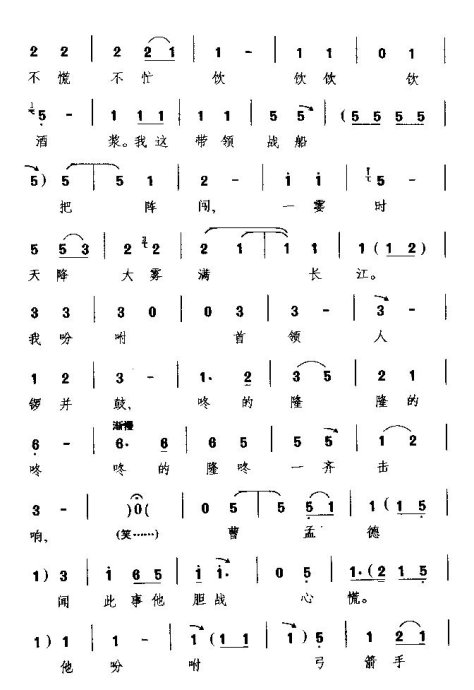 2 2 | 2 2 1 | 1 - | 1 1 | 0 1
不慌 不忙 饮 饮饮 饮
5 - | 1 1 1 | 1 1 | 5 5 | (5 5 5 5
酒 浆。我这 带领 战船
5) 5 | 5 1 | 2 - | i i | 5 -
把 阵 闯, 一雾 时
5 5 3 | 2 2 | 2 1 | 1 1 | 1 (1 2)
天降 大雾 满 长 江。
3 3 | 3 0 | 0 3 | 3 3 | 3 -
我吩 咐 首领 人
1 2 | 3 - | 1· 2 | 3 5 | 2 1
锣并 鼓, 咚的 隆 隆的
渐慢
6 - | 6· 6 | 6 5 | 5 5 | 1 2
咚 咚的 隆咚 一齐 击
3 - | )0( | 0 5 | 5 5 1 | 1 (1 5
响, (笑……) 曹 孟 德
1) 3 | i 6 5 | i i· | 0 5 | 1· (2 1 5
闻 此事他 胆战 心 慌。
1) 1 | 1 - | 1 (1 1 | 1) 5 | 1 2 1
他 吩 咐 弓 箭手